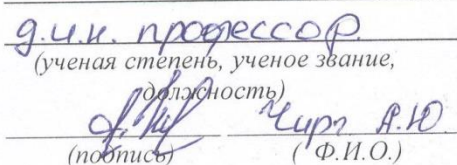 д.и.н. профессор
(ученая степень, ученое звание,
должность)
Чирг А.Ю
(подпись) ( Ф.И.О.)